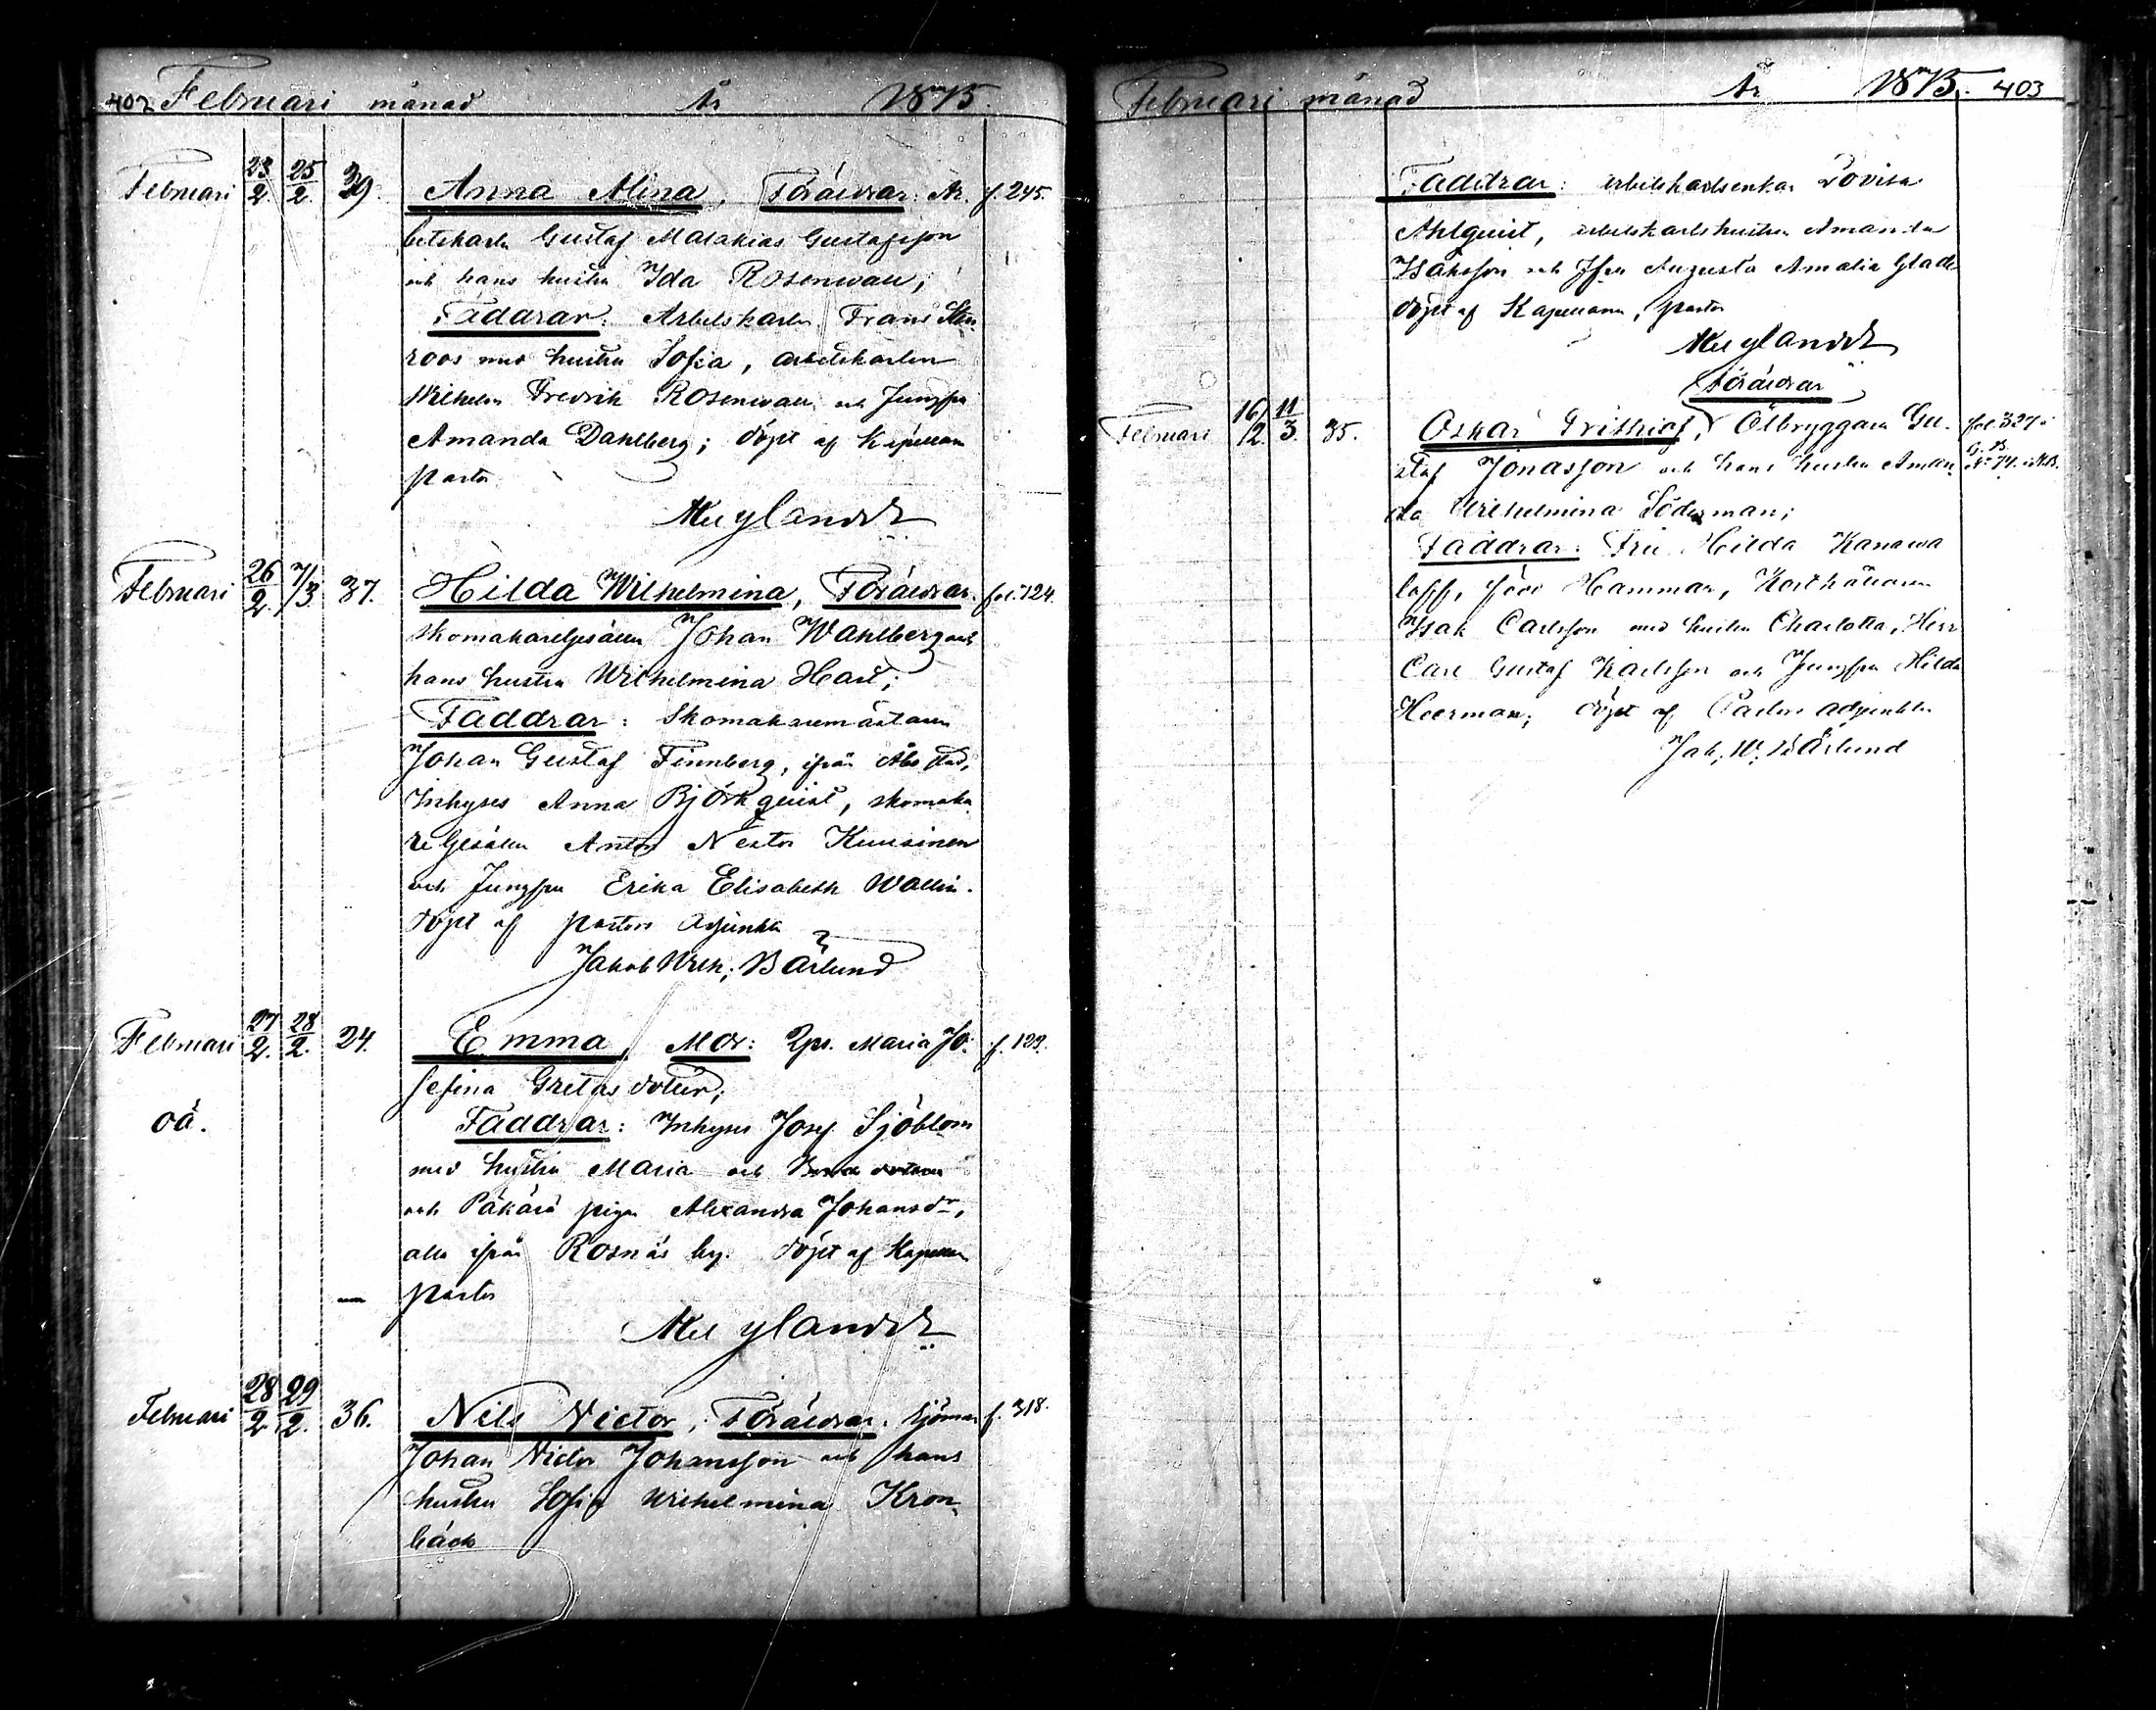 402 Februari månad År 1875.
Februari 23/2. 25/2. 39. Anna Alina, Föräldrar: Ar- f. 245.
betskarln Gustaf Malakias Gustafsson
och hans hustru Ida Rosenwall;
Faddrar: Arbetskarln Frans Sten-
roos med hustru Sofia, arbetskarlen
Wilhelm Fredrik Rosenwall och Jungfru
Amanda Dahlberg; döpt af Kapellans
pastor
Mell
Februari 26/2. 7/3. 37. Hilda Wilhelmina, Föräldrar: fol. 124.
skomakaregesällen Johan Wahlberg och
hans hustru Wilhelmina Hart;
Faddrar: Skomakaremästaren
Johan Gustaf Finnberg, ifrån Åbo stad,
Inhyses Anna Björkquist, skomaka-
regesällen Anton Nestor Kuusinen
och Jungfru Erika Elisabeth Wallin.
döpt af pastors adjunkten
Jakob Wilh; Bärlund
Februari 27/2. 28/2. 24. Emma, Mor: Maria Jo- f. 129.
sefina Gretas dotter;
oä.
Faddrar: Inhyses Josef Sjöblom
med hustru Maria och
och pigan Alexandra Johansdr,
alla ifrån Rosnäs by. döpt af Kapellans
pastor
Februari 28/2. 29/2. 36. Nils Victor, Föräldrar: Sjöman f. 318.
Johan Victor Johansson och hans
hustru Sofia Wilhelmina Kron-
bäck
Februari månad År 1875. 403
Faddrar: arbetskarlsenkan Lovisa
Ahlquist, arbetskarlshustrun Amanda
Isaksson och Jfru Augusta Amalia Glad
döpt af Kapellans, pastor
Föräldrar
Februari 16/2. 11/3. 35. Oskar Frithiof, Ölbryggaren Gu- fol. 327 i
staf Jonasson och hans hustru Aman- No 74.
da Wilhelmina Söderman;
Faddrar: Fru Hilda Kanawa
loff, född Hammar,
Isak Carlsson med hustru Charlotta, Herr
Carl Gustaf Karlsson och Jungfru Hilda
Heerman; döpt af Pastors adjunkten
Jak; W; Bärlund